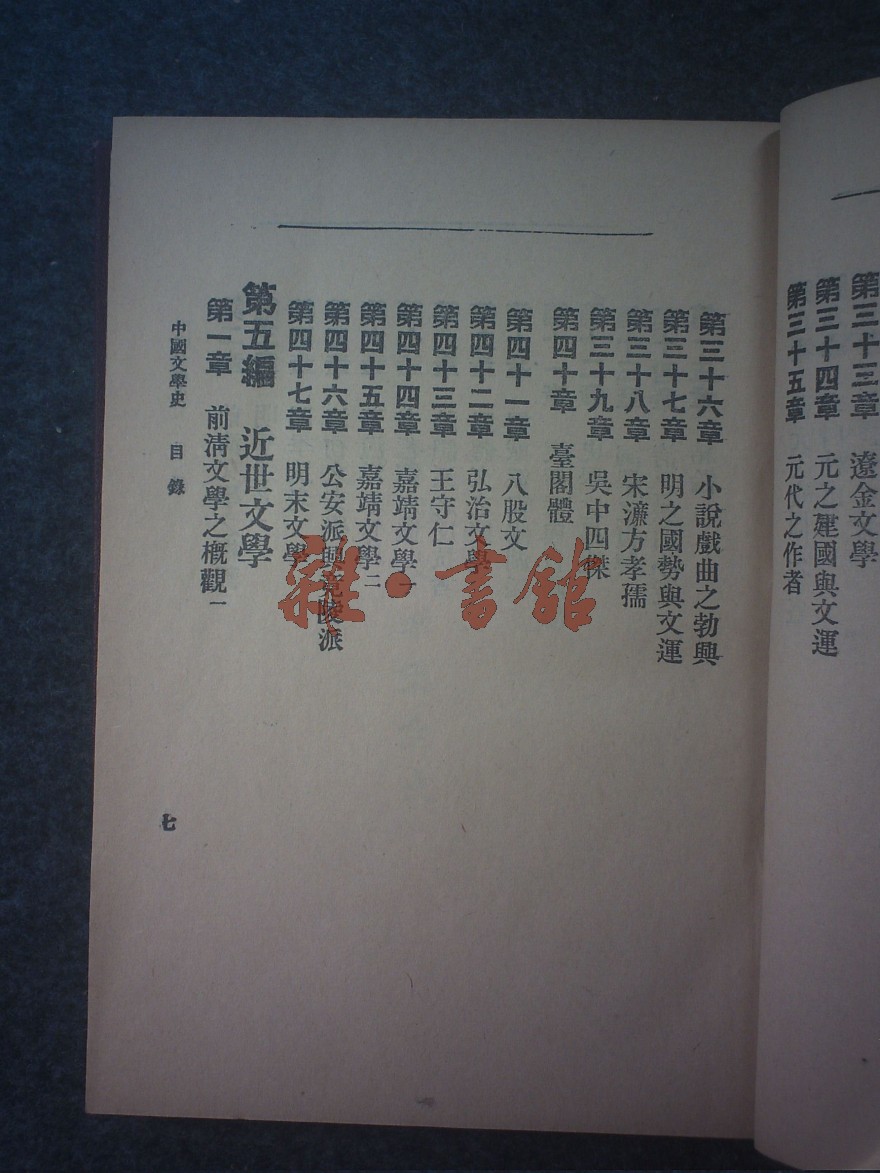 第三十三章 遼金文學
第三十四章 元之建國與文運
第三十五章 元代之作者
第三十六章 小說戲曲之勃興
第三十七章 明之國勢與文運
第三十八章 宋濂方孝孺
第三十九章 吳中四傑
第四十章 臺閣體
第四十一章 八股文
第四十二章 弘治文學
第四十三章 王守仁
第四十四章 嘉靖文學一
第四十五章 嘉靖文學二
第四十六章 公安派與竟陵派
第四十七章 明末文學
第五編 近世文學
第一章 前淸文學之槪觀一
中國文學史 目錄
七
雜·書館